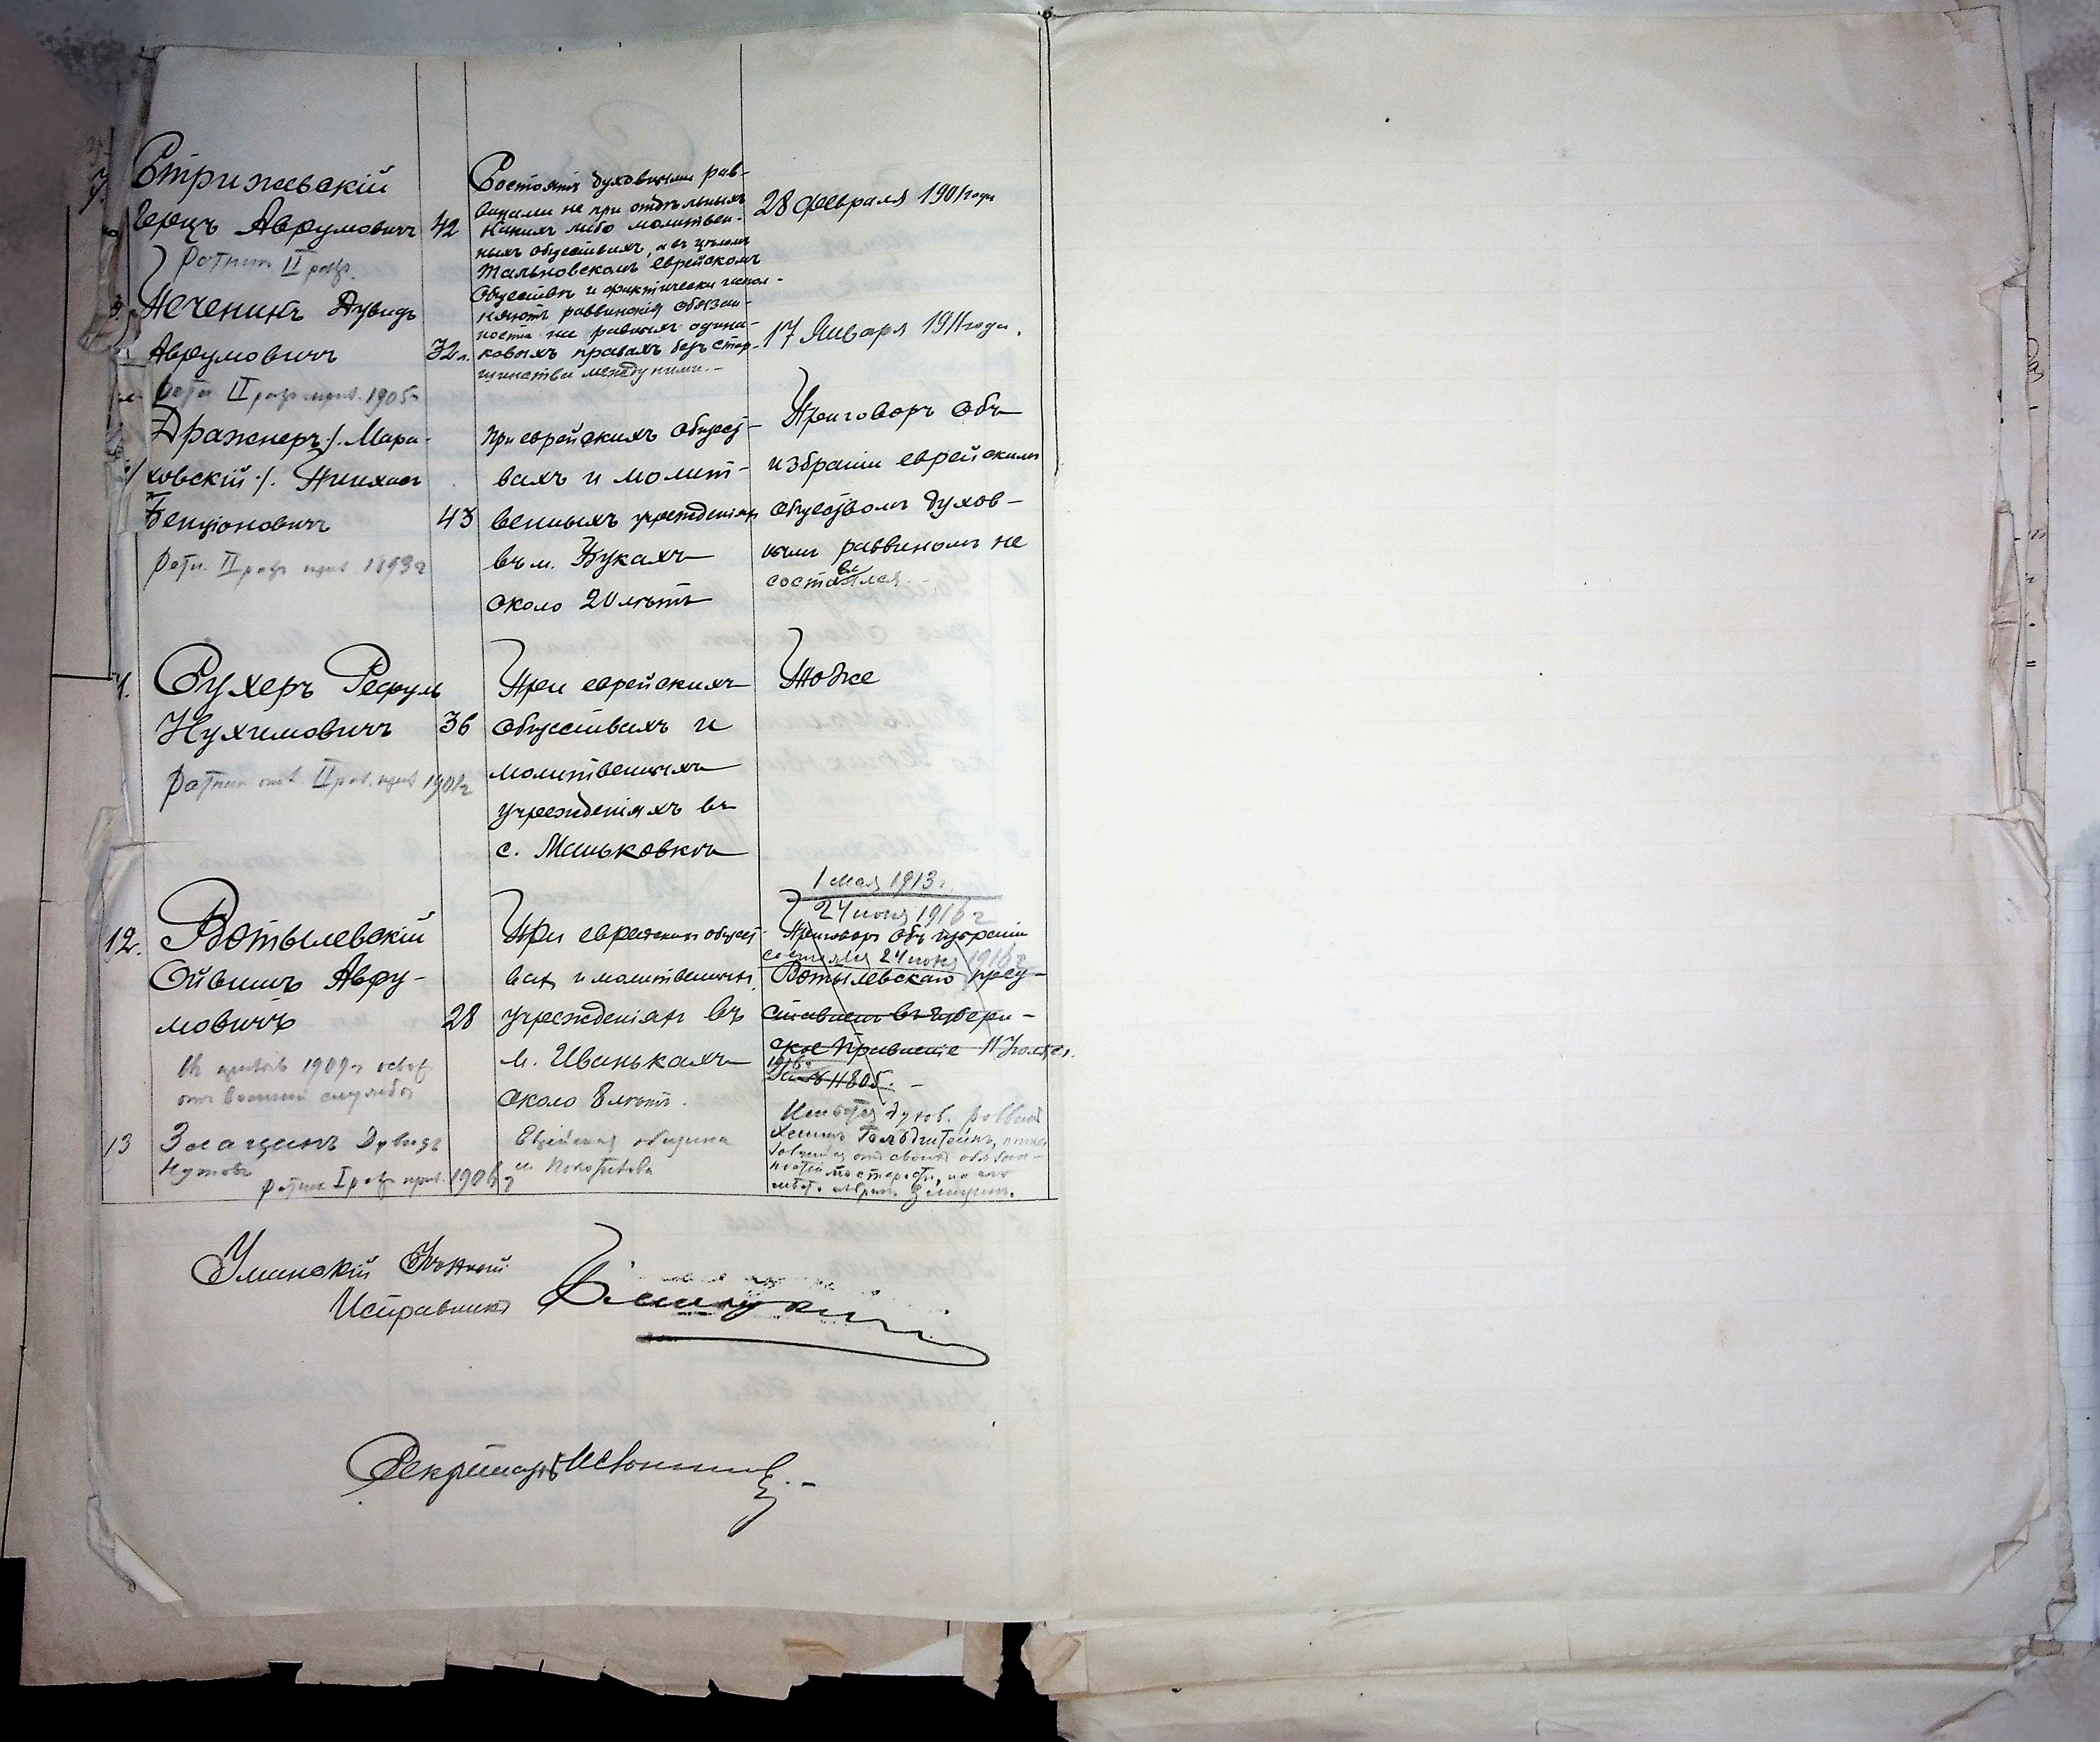 Стрижевскій
Герцъ Аврумовичъ 42
Ратник II разр.
Состоятъ духовными рав-
винами не при отдѣльныхъ
какихъ либо молитвен-
ныхъ обществахъ, а въ цѣломъ
Тальновскомъ еврейскомъ
Обществѣ и фактически испол-
няютъ раввинскія обязан-
ности на равныхъ одина-
ковыхъ правахъ безъ стар-
шинства между ними. -
28 февраля 1901 года
Неченинъ Дувидъ
Аврумовичъ 32 л.
ратн. II разр. приз. 1905 г
17 Января 1911 года.
Дражнеръ /. Мара-
ховскій ./. Пинхасъ
Бенціоновичъ 43
Ратн. II разр приз. 1893 г
При еврейскихъ общест-
вахъ и молит-
венныхъ учрежденіяхъ
въ м. Букахъ
около 20 лѣтъ
Приговоръ объ
избраніи еврейскимъ
обществомъ духов-
нымъ раввиномъ не
составлялся.
Сухеръ Рефулъ
Нухимовичъ 36
Ратник опол. II раз. приз 1901 г
При еврейскихъ
обществахъ и
молитвенныхъ
учрежденіяхъ въ
с. Маньковкѣ
Тоже
12. Ротылевскій
Ойвишъ Авру-
мовичъ 28
въ призывъ 1909 г освоб.
отъ военной службы
При еврейскихъ общест-
вахъ и молитвенныхъ
учрежденіяхъ въ
м. Иванькахъ
около 8 лѣтъ.
1 мая 1913 г.
24 июня 1916 г
Приговоръ объ избраніи
состоялся 24 июня 1916 г
Ротылевскаго пред-
ставленъ въ Губерн-
ское Правленіе 11 Іюля с.г.
1916 г.
за № 11805. -
13 Залацинъ Дувидъ
Нутовъ
ратник I разр. приз. 1906 г
Еврейская община
Имѣется духов. раввинъ
Хаимъ Гольдштейнъ,
отъ своихъ обязан-
ностей по старости, на его
мѣсто избранъ
Уманскій Уѣздный
Исправникъ
Секретарь